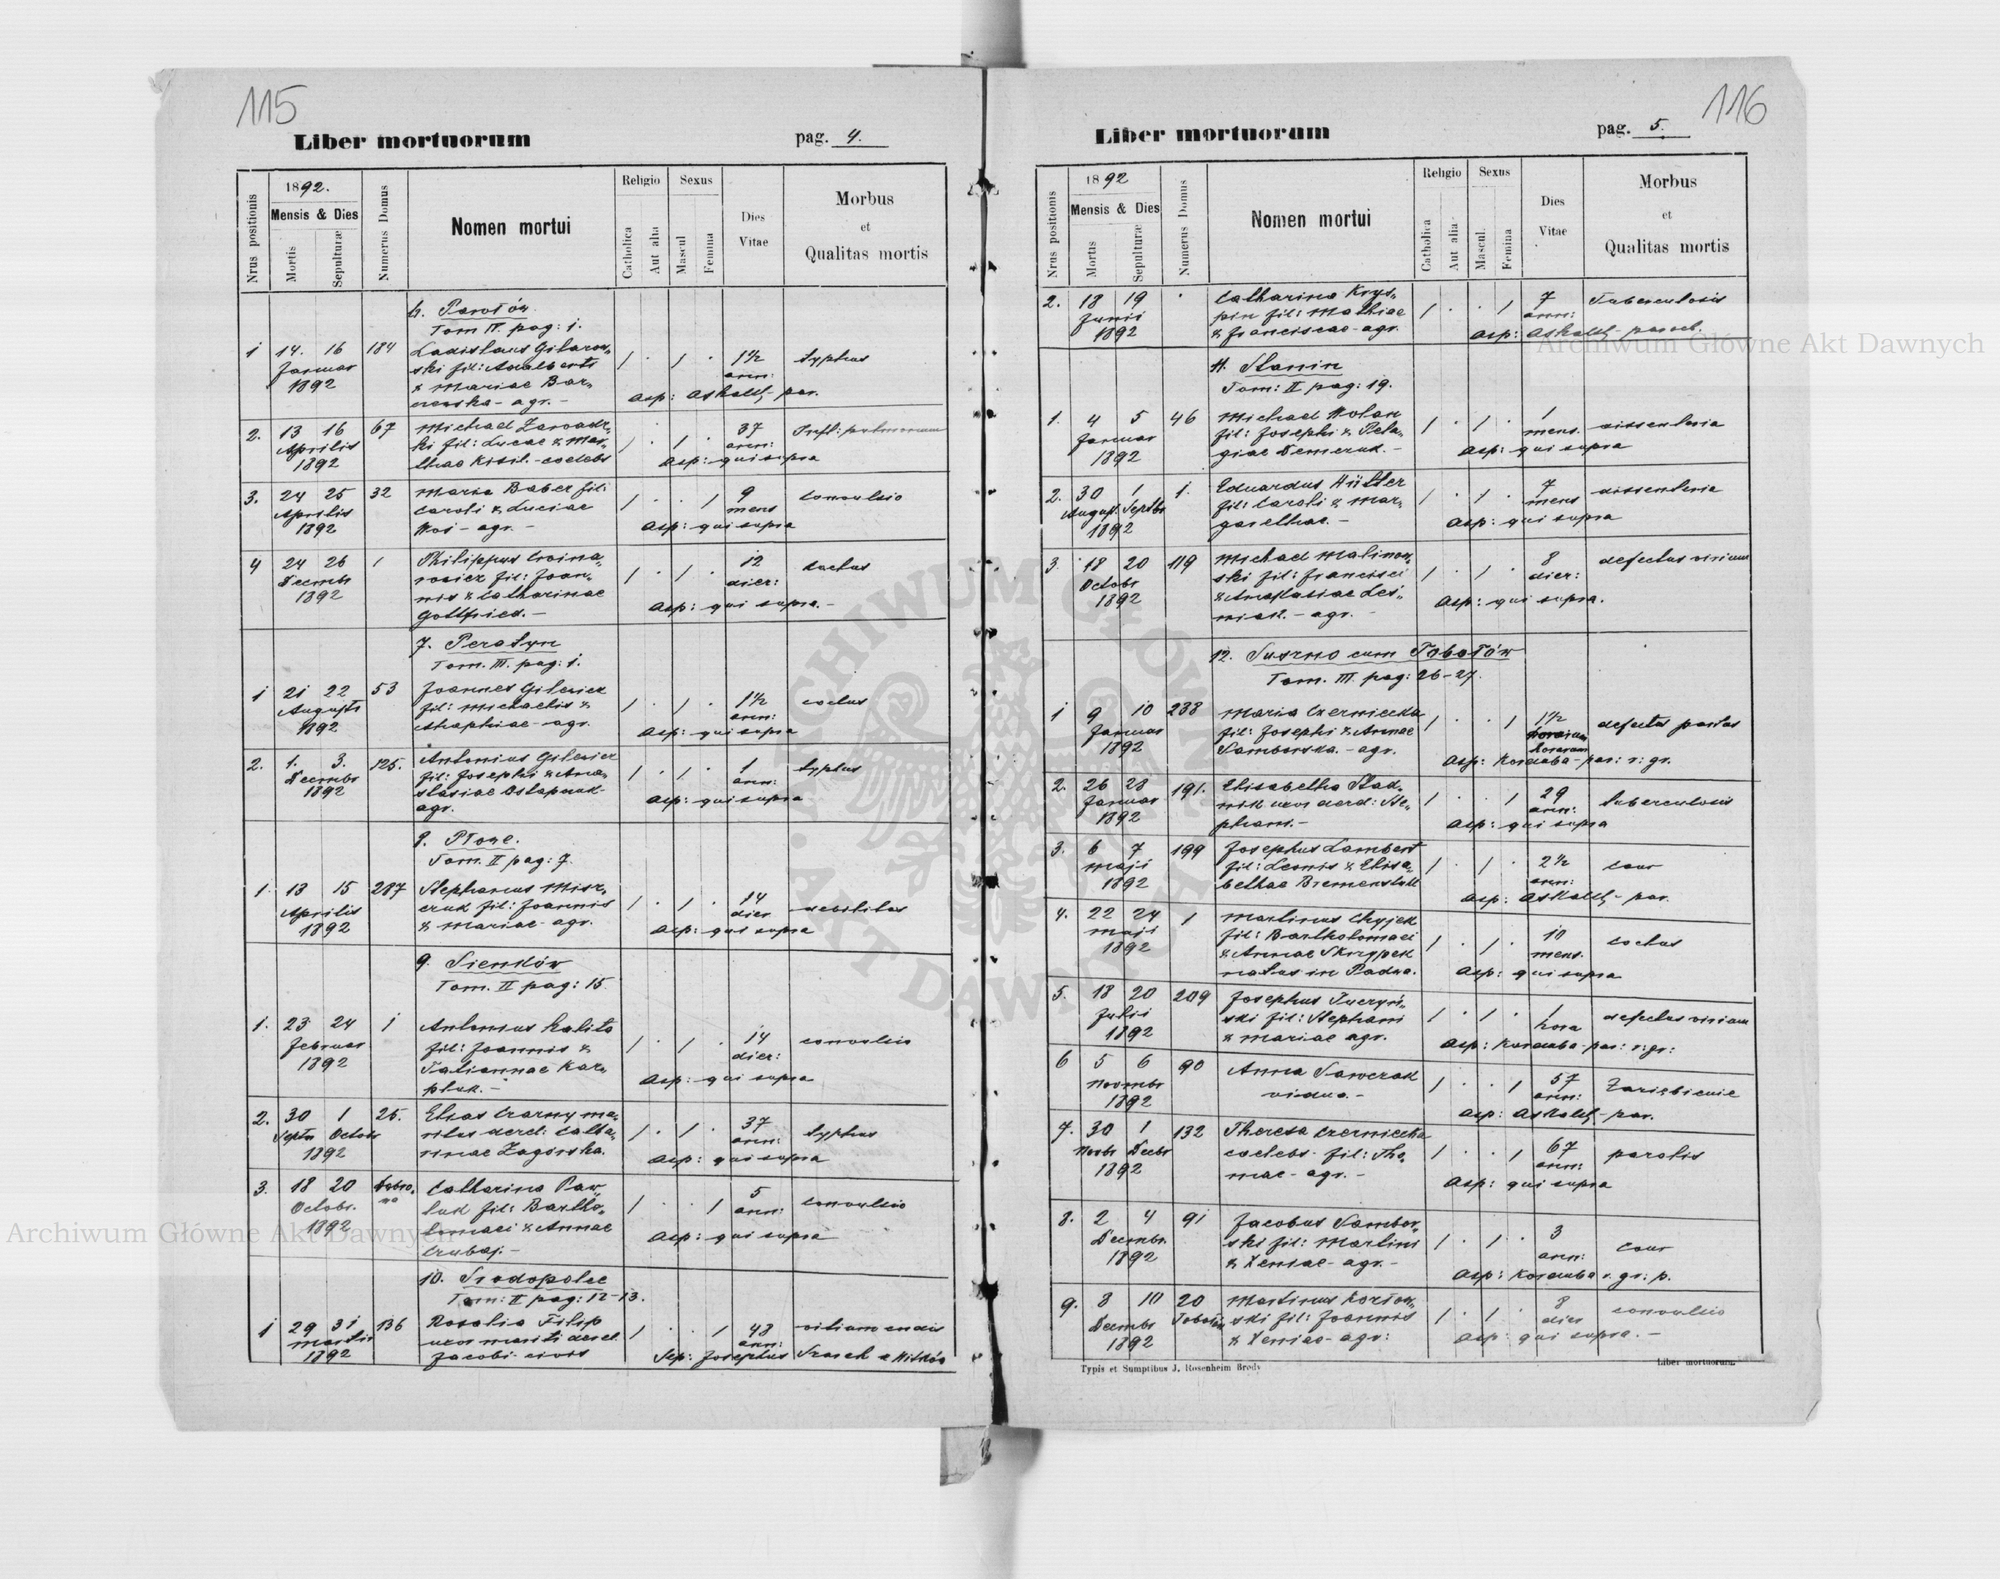 115
Liber mortuorum
pag. 4.
Nrus positionis
1892.
Mensis & Dies
Mortis
Sepulturæ
Numerus Domus
Nomen mortui
Religio
Catholica
Aut alia
Sexus
Mascul
Femina
Dies
Vitae
Morbus
et
Qualitas mortis
6. Pawłów
Tom IV. pag: 1.
1 14. 16 184 Ladislaus Gilarow-
Januar ski fil: Adalberti / . / . 1½ typhus
1892 & Mariae Bar- ann:
- agr. - asp: Askaldz - par.
2. 13 16 67 Michael Zawadz-
Aprilis ki fil: Lucae & Mar- / . / . 37 Infl: pulmonum
1892 thae Kisil. - coelebs ann:
asp: qui supra
3. 24 25 32 Maria Baber fil:
Aprilis Caroli & Luciae / . . / 9 convulsio
1892 Koś - agr. - mens
asp: qui supra
4 24 26 1 Philippus
Decembr fil: Joan- / . / . 12 coctus
1892 nis & Catharinae dier:
Gottfried. - asp: qui supra. -
7. Peratyn
Tom. III. pag: 1.
1 21 22 53 Joannes Gilewicz
Augusti fil: Michaelis & / . / . 1½ coctus
1892 - agr. ann:
asp: qui supra
2. 1. 3. 125. Antonius Gilewicz
Decembr fil: Josephi & Ana- / . / . 1 typhus
1892 stasiae Ostapczuk - ann:
agr. asp: qui supra
8. Płowe.
Tom. II pag: 7.
1. 13 15 287 Stephanus Misz-
Aprilis czuk fil: Joannis / . / . 14 debilitas
1892 & Mariae - agr. dier
asp: qui supra
9. Sieńków
Tom. II pag: 15.
1. 23 24 1 Antonius Kalita
Februar fil: Joannis & / . / . 14 convulsio
1892 Tatiannae Kar- dier:
pluk. - asp: qui supra
2. 30 1 25. Elias Czarny ma-
Septbr Octobr ritus derel: Catha- / . / . 37 typhus
1892 rinae Zagórska. ann:
asp: qui supra
3. 18 20 Catharina Paw
Octobr. luk fil: Bartho- / . . / 5 convulsio
1892 lomaei & Annae ann:
Czubaj. - asp: qui supra
10. Srodopolce
Tom: II pag: 12-13.
1 29 31 136 Rosalia Filip
Martii uxor mariti derel. / . . / 48 vitium cordis
1892 Jacobi civis ann:
Sep: Josephus
116
Liber mortuorum
pag. 5.
Nrus positionis
1892
Mensis & Dies
Mortis
Sepulturæ
Numerus Domus
Nomen mortui
Religio
Catholica
Aut alia
Sexus
Mascul.
Femina
Dies
Vitae
Morbus
et
Qualitas mortis
2. 18 19 . Catharina Krys-
Junii pin fil: Mathiae / . . / 7 Tuberculosis
1892 & Franciscae - agr. ann:
asp: Askaldz - paroch.
11. Stanin
Tom: II pag: 19.
1. 4 5 46 Michael Wolan
Januar fil: Josephi & Pela- / . / . 1 dissenteria
1892 giae Demczuk. - mens.
asp: qui supra
2. 30 1 1. Eduardus Hütter
August. Septbr fil: Caroli & Mar- / . / . 7 dissenteria
1892 garethae. - mens
asp: qui supra
3. 18 20 119 Michael Malinow-
Octobr ski fil: Francisci / . / . 8 defectus virium
1892 & Anastasiae Leś- dier:
niak. - agr. - asp: qui supra.
12. Suszno cum Tobołów
Tom. III. pag: 26-27.
1 9 10 288 Maria Czerniecka
Januar fil: Josephi & Annae / . . / 1½ defectus partus
1892 Samborska. - agr. horarum
asp: Korduba - par: r: gr.
2. 26 28 191. Elisabetha Stad-
Januar nik uxor derel: Ste- / . . / 29 tuberculosis
1892 phani. - ann:
asp: qui supra
3. 6 7 199 Josephus Lambert
Maji fil: Leonis & Elisa- / . / . 2½ cour
1892 bethae Bremenstull ann:
asp: Askaldz - par.
4. 22 24 1 Martinus Chyjek
Maji fil: Bartholomaei / . / . 10 coctus
1892 & Annae Skrzypek mens.
natus in Padwa. asp: qui supra
5. 18 20 209 Josephus Tuczyń-
Julii ski fil: Stephani / . / . 1 defectus virium
1892 & Mariae agr. hora
asp: Korduba - par: r: gr:
6 5 6 90 Anna Sawczak
Novembr vidua. - / . . / 57 Zaziębienie
1892 ann:
asp: Askaldz - par.
7. 30 1 132 Theresa Czerniecka
Novbr Decbr coelebs - fil: Tho- / . . / 67 paralis
1892 mae - agr. - ann:
asp: qui supra
8. 2 4 91 Jacobus Sambor-
Decembr. ski fil: Martini / . / . 3 cour
1892 & Xeniae - agr. - ann:
asp: Korduba r. gr: p.
9. 8 10 20 Martinus Kozłow-
Decembr Tobołów ski fil: Joannis / . / . 8 convulsio
1892 & Xeniae - agr: dier
asp: qui supra. -
Typis et Sumptibus J. Rosenheim Brody
Liber mortuorum.
Archiwum Główne Akt Dawnych
Archiwum Główne Akt Dawnych
ARCHIWUM GŁÓWNE AKT DAWNYCH